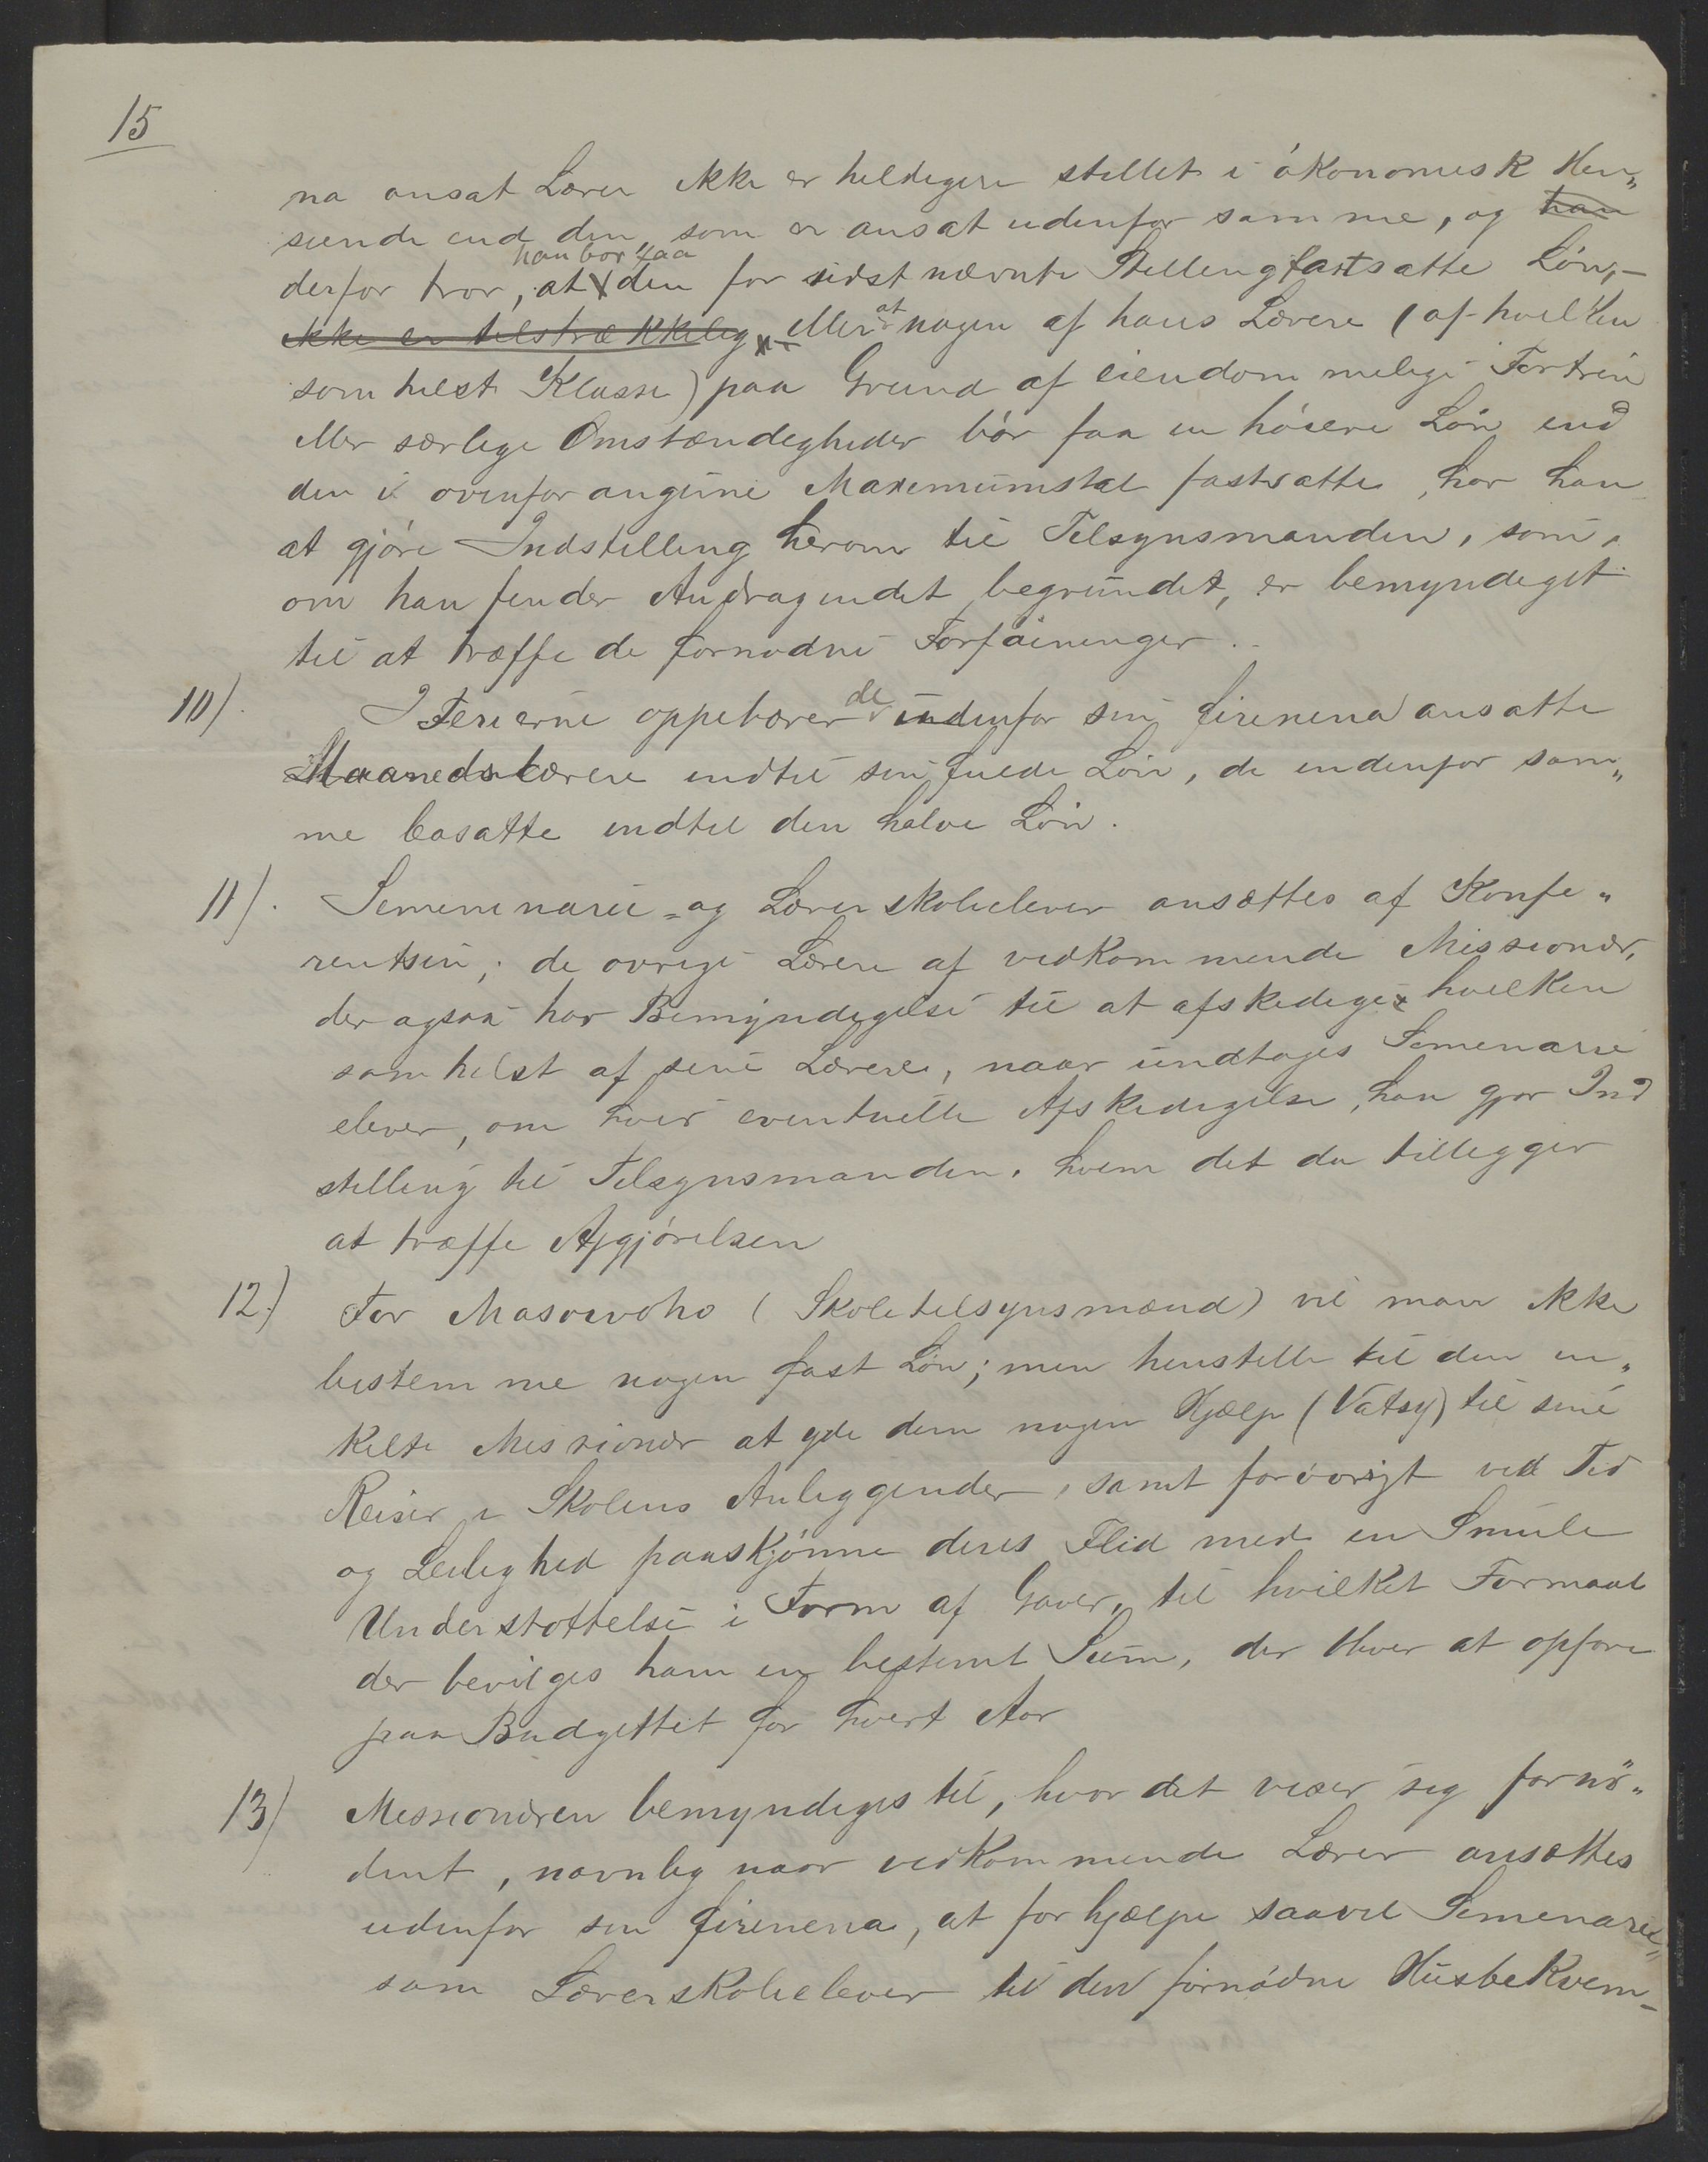 15
na ansat Lærer ikke er heldigere stillet i økonomisk Hen„
seende end den, som er ansat udenfor samme, og han
derfor tror, at han bør faa den for sidst nævnte Stilling fastsatte Løn,-
ikke er tilstrækkelig x- eller at nogen af hans Lærere (af hvilken
som helst Klasse) paa Grund af eiendommelige Fortrin
eller særlige Omstændigheder bør faa en høiere Løn end
den i ovenfor angivne Maximumstal fastsatte, har han
at gjøre Indstilling herom til Tilsynsmanden, som,
om han finder Andragendet begrundet, er bemyndiget
til at træffe de fornødne Forføininger.
10). I Ferierne oppebærer de indenfor sin firenena ansatte
Maanedslærere indtil sin fulde Løn, de indenfor sam„
me bosatte indtil den halve Løn.
11). Seminarie- og Lærerskoleelever ansættes af Konfe„
rentsen; de øvrige Lærere af vedkommende Missionær,
der ogsaa har Bemyndigelse til at afskedige hvilken
som helst af sine Lærere, naar undtages Seminarie
elever, om hvis eventuelle Afskedigelse, han gjør Ind
stilling til Tilsynsmanden, hvem det da tillegger
at træffe Afgjørelsen
12.) For Masoivoho (Skoletilsynsmænd) vil man ikke
bestemme nogen fast Løn; men henstille til den en„
kelte Missionær at yde dem nogen Hjælp (Vatsy) til sine
Reiser i Skolens Anliggender, samt forøvrigt ved Tid
og Leilighed paaskjønne deres Flid med en Smule
Understøttelse i Form af Gaver, til hvilket Formaal
der bevilges ham en bestemt Sum, der bliver at opføre
paa Budgettet for hvert Aar
13) Missionæren bemyndiges til, hvor det viser sig fornø„
dent, navnlig naar vedkommende Lærer ansættes
udenfor sin firenena, at forhjælpe saavel Seminarie„
som Lærerskoleelever til den fornødne Husbekvem-